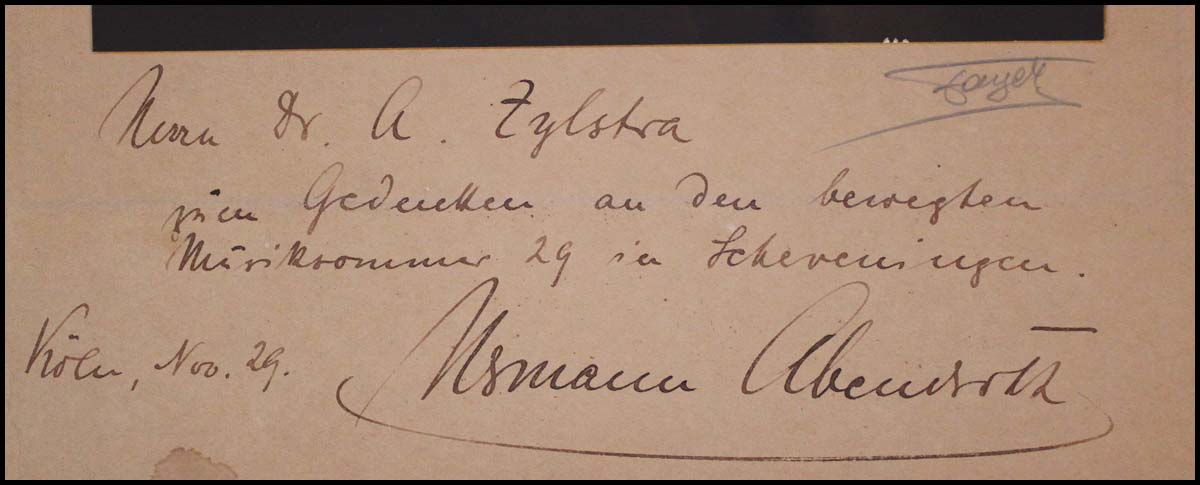 Herrn Dr. A. Zylstra
zum Gedenken an den bewegten
Musiksommer 29 in Scheveningen.
Köln, Nov. 29. Hermann Abendroth